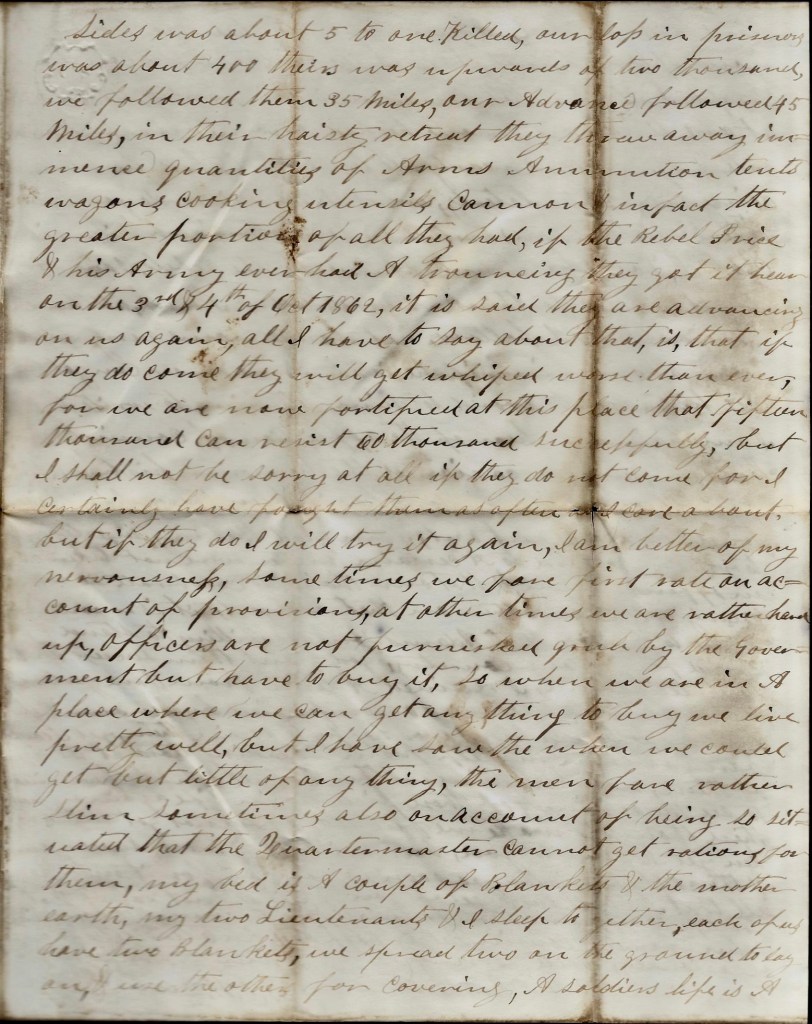 Sides was about 5 to one Killed, our loss in prisoners
was about 400 theirs was upwards of two thousand,
we followed them 35 Miles, our Advance followed 45
Miles, in their haisty retreat they threw away im-
mence quantities of Arms Ammunition tents
wagons cooking utensils Cannon & infact the
greater portion of all they had, if the Rebel Price
& his Army ever had A trouncing they got it hear
on the 3rd & 4th of Oct 1862, it is said they are advancing
on us again, all I have to say about that, is, that if
they do come they will get whiped worse than ever,
for we are now fortified at this place that fifteen
thousand can resist 60 thousand successfully, but
I shall not be sorry at all if they do not come for I
certainly have fought them as often as I care about.
but if they do I will try it again, I am better of my
nervousness, some times we fare first rate on ac=
count of provisions, at other times we are rather hard
up, officers are not furnished grub by the Gover-
ment but have to buy it, so when we are in A
place where we can get any thing to buy we live
pretty well, but I have saw the when we could
get but little of any thing, the men fare rather
slim sometimes also on account of being so sit-
uated that the Quartermaster cannot get rations for
them, my bed is A couple of Blankets & the mother
earth, my two Lieutenants & I sleep to gether, each of us
have two Blankets, we spread two on the ground to lay
on, & use the other for covering, A soldiers life is A